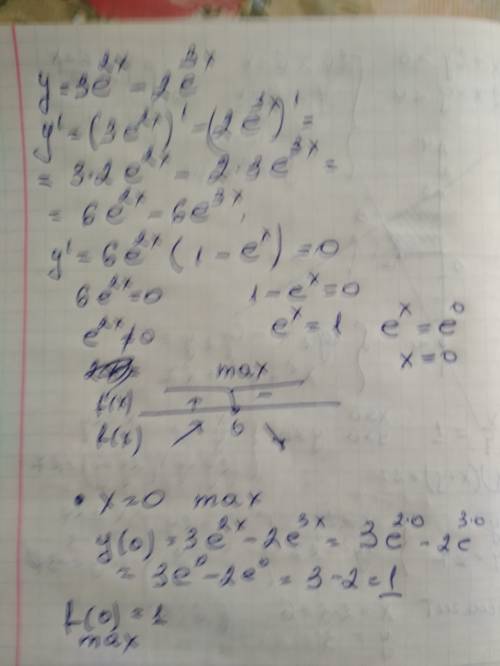 y = 3e^{2x} - 2e^{3x}
y' = (3e^{2x})' - (2e^{3x})' =
= 3·2e^{2x} - 2·3e^{3x} =
= 6e^{2x} - 6e^{3x},
y' = 6e^{2x} (1 - e^x) = 0
6e^{2x} = 0 1 - e^x = 0
e^{2x} ≠ 0 e^x = 1 e^x = e^0
x = 0
max
f'(x) + -
f(x) ↗ 0 ↘
• x = 0 max
y(0) = 3e^{2x} - 2e^{3x} = 3e^{2·0} - 2e^{3·0}
= 3e^0 - 2e^0 = 3 - 2 = 1
f(0) = 1
max